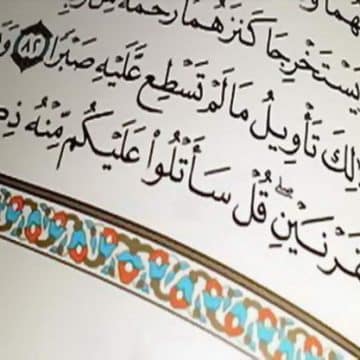 وَيَسْتَخْرِجَا كَنزَهُمَا رَحْمَةً
ذَٰلِكَ تَأْوِيلُ مَا لَمْ تَسْطِع عَّلَيْهِ صَبْرًا ٨٢
قَرْنَيْنِ ۖ قُلْ سَأَتْلُوا۟ عَلَيْكُم مِّنْهُ